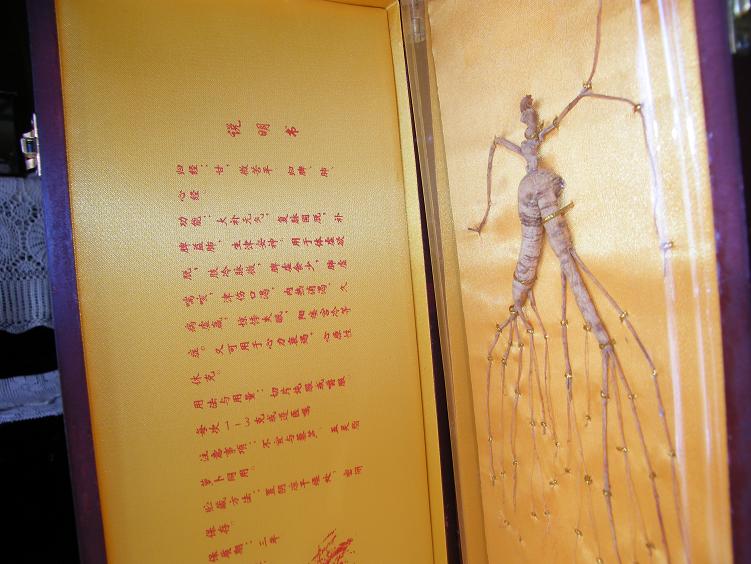 说明书
归经：甘，微苦平 归脾、肺、
心经
功能：大补元气，复脉固脱，补
脾益肺，生津安神。用于体虚欲
脱，肢冷脉微，脾虚食少，肺虚
喘咳，津伤口渴，内热消渴，久
病虚羸，惊悸失眠，阳痿宫冷等
症。又可用于心力衰竭，心原性
休克。
用法与用量：切片炖服或嚼服，
每次1-3克或遵医嘱
注意事项：不宜与藜芦、五灵脂
萝卜同用。
贮藏方法：置阴凉干燥处，密闭
保存。
保质期：三年